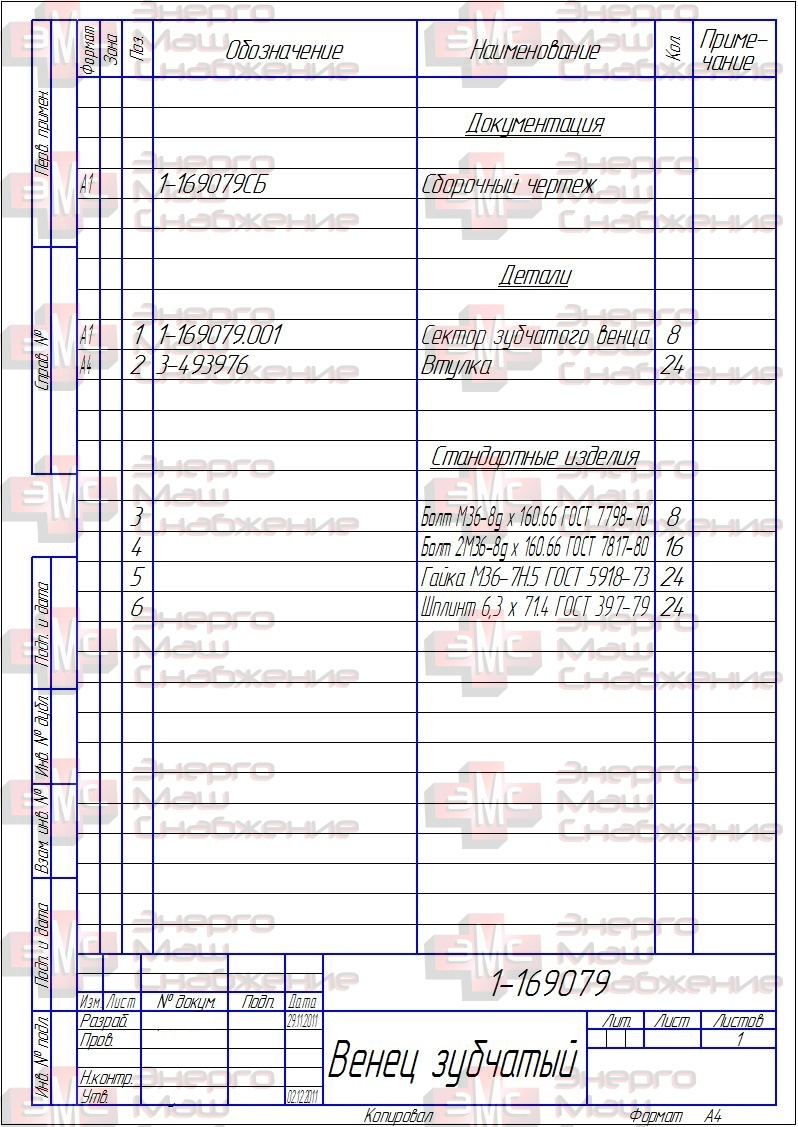 Формат Зона Поз. Обозначение Наименование Кол. Приме-
чание
Документация
А1 1-169079СБ Сборочный чертеж
Детали
А1 1 1-169079.001 Сектор зубчатого венца 8
А4 2 3-493976 Втулка 24
Стандартные изделия
3 Болт М36-8g х 160.66 ГОСТ 7798-70 8
4 Болт 2М36-8g х 160.66 ГОСТ 7817-80 16
5 Гайка М36-7Н.5 ГОСТ 5918-73 24
6 Шплинт 6,3 х 71.4 ГОСТ 397-79 24
Перв. примен.
Справ. №
Подп. и дата
Инв. № дубл.
Взам. инв. №
Подп. и дата
Инв. № подл.
1-169079
Изм. Лист № докум. Подп. Дата
Разраб. 29.11.2011
Пров.
Н.контр.
Утв. 02.12.2011
Венец зубчатый
Лит. Лист Листов
1
Копировал Формат А4
ЭМС
Энерго
Маш
Снабжение